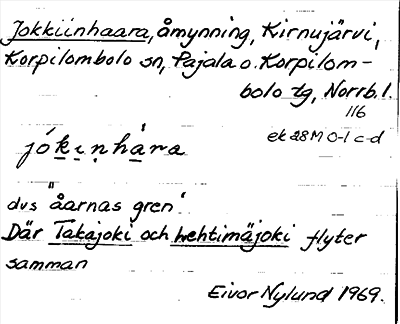 Jokkiinhaara, åmynning, Kirnujärvi,
Korpilombolo sn, Pajala o. Korpilom-
bolo tg, Norrb. l.
116
ek 28 M 0-1 c-d
jókinhàra
dvs "åarnas gren"
Där Takajoki och Lehtimäjoki flyter
samman
Eivor Nylund 1969.